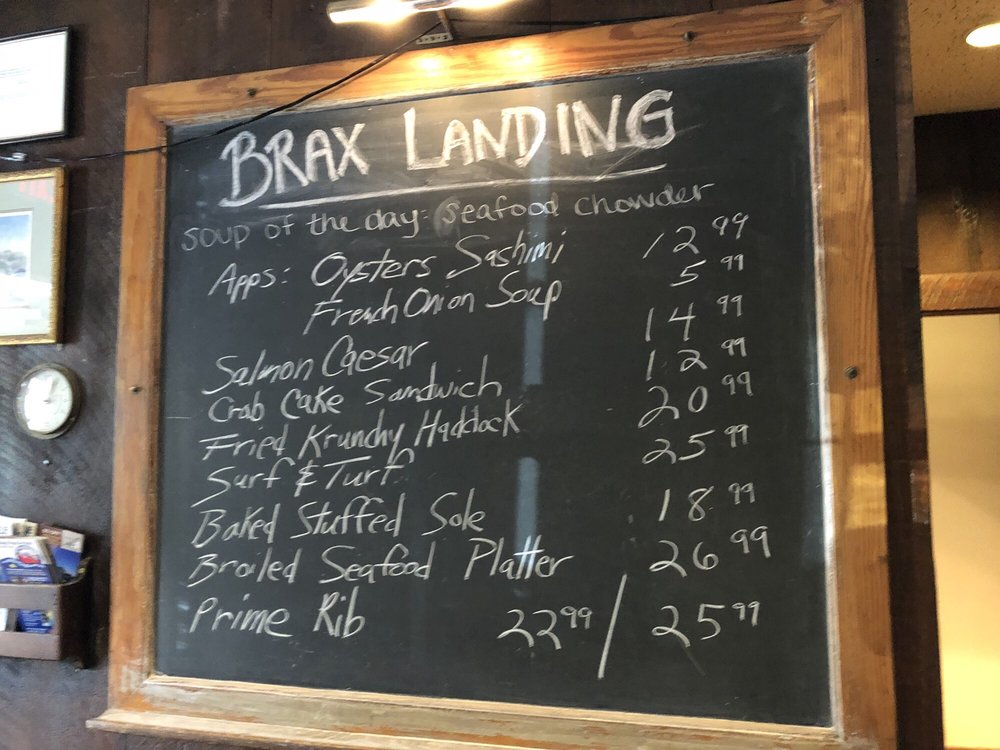 BRAX LANDING
soup of the day: seafood chowder
Apps: Oysters Sashimi 12.99
French Onion Soup 5.99
Salmon Caesar 14.99
Crab Cake Sandwich 12.99
Fried Krunchy Haddock 20.99
Surf & Turf 25.99
Baked Stuffed Sole 18.99
Broiled Seafood Platter 26.99
Prime Rib 22.99 / 25.99